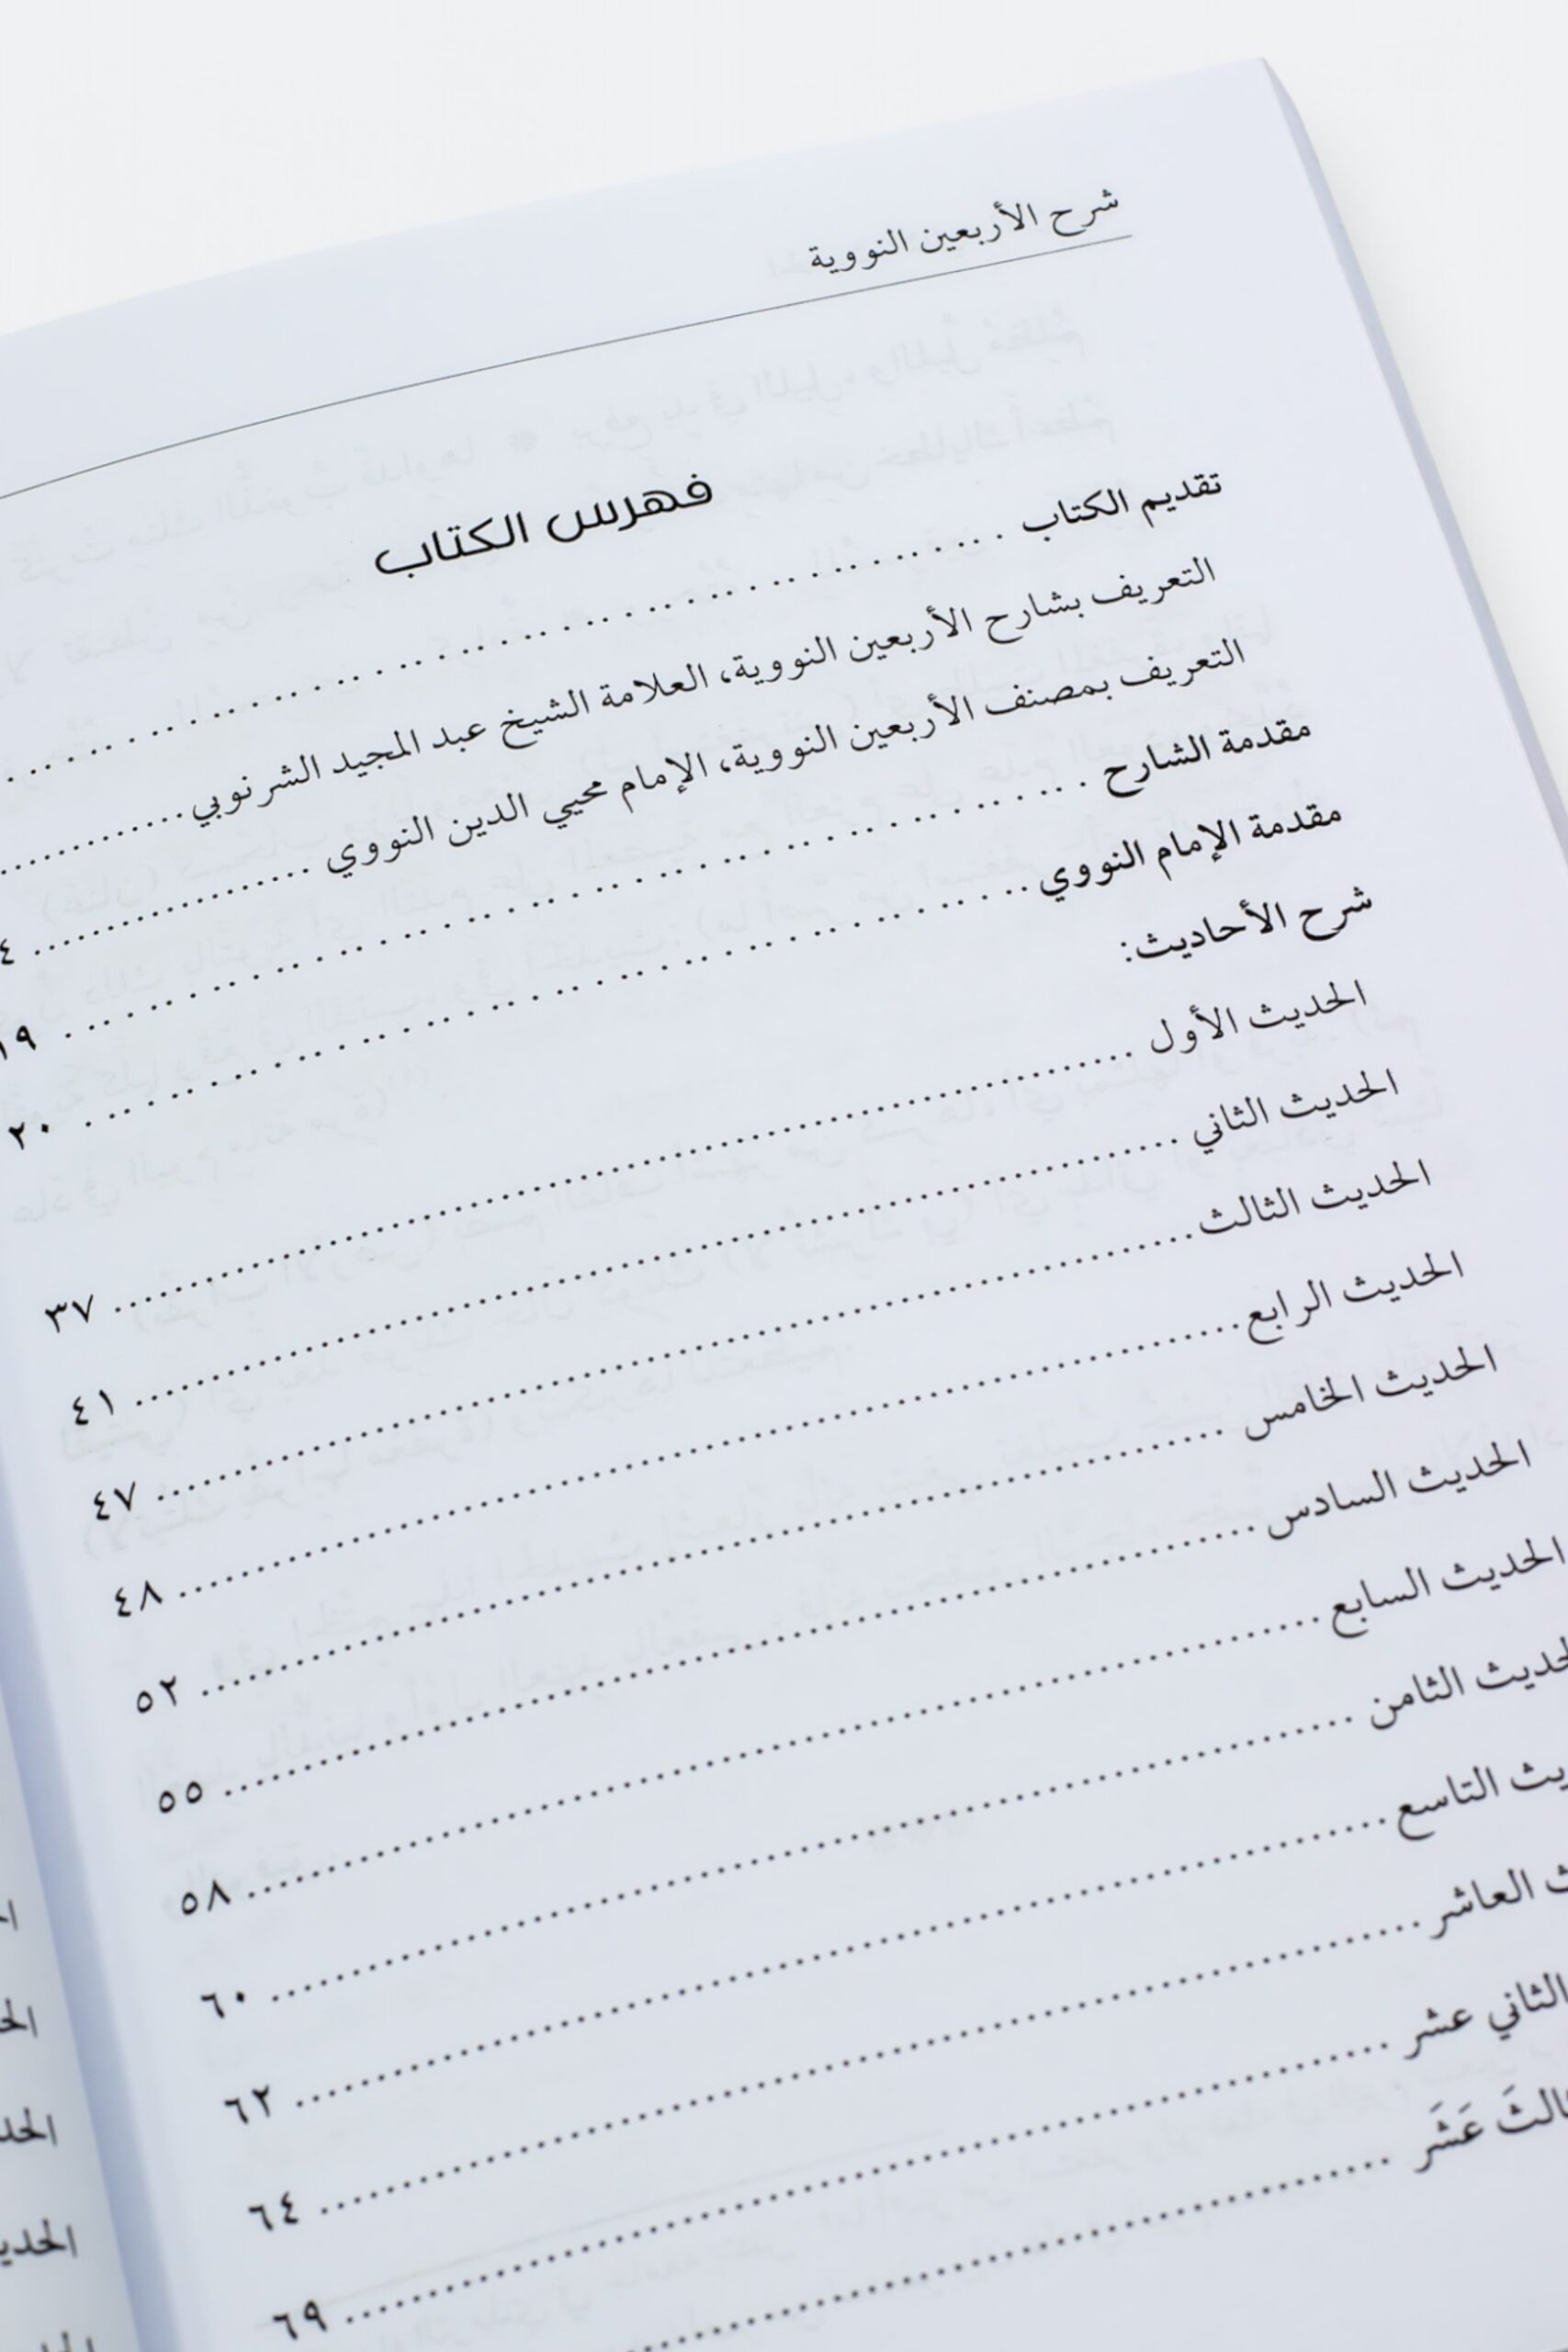 شرح الأربعين النووية
فهرس الكتاب
تقديم الكتاب
التعريف بشارح الأربعين النووية، العلامة الشيخ عبد المجيد الشرنوبي
التعريف بمصنف الأربعين النووية، الإمام محيي الدين النووي
مقدمة الشارح ١٩
مقدمة الإمام النووي ٢٠
شرح الأحاديث:
الحديث الأول ٣٧
الحديث الثاني ٤١
الحديث الثالث ٤٧
الحديث الرابع ٤٨
الحديث الخامس ٥٢
الحديث السادس ٥٥
الحديث السابع ٥٨
الثامن ٦٠
التاسع ٦٢
العاشر ٦٤
الثاني عشر ٦٩
عَشَر